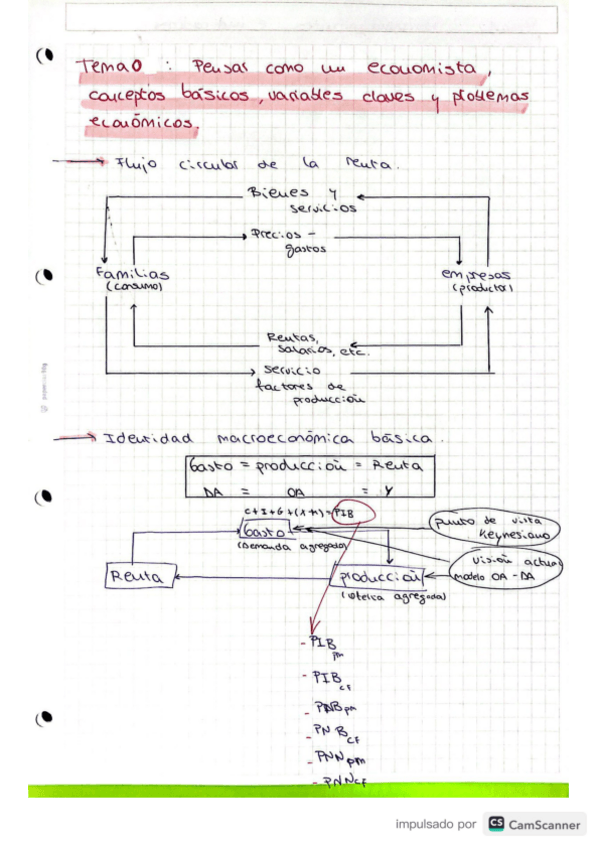 Tema 0 : Pensar como un economista,
conceptos básicos, variables claves y problemas
económicos.
→ Flujo circular de la renta.
Bienes y
servicios
Precios -
gastos
Familias
(consumo)
empresas
(productor)
Rentas,
salarios, etc.
servicio
factores de
producción
→ Identidad macroeconómica básica.
Gasto = producción = Renta
DA = OA = Y
C+I+G+(X-M)=PIB
Gasto
(Demanda agregada)
punto de vista
Keynesiano
visión actual
modelo OA-DA
Renta
producción
(oferta agregada)
- PIB pm
- PIB cf
- PNB pm
- PNB CF
- PNN pm
- PNN CF
impulsado por CS CamScanner